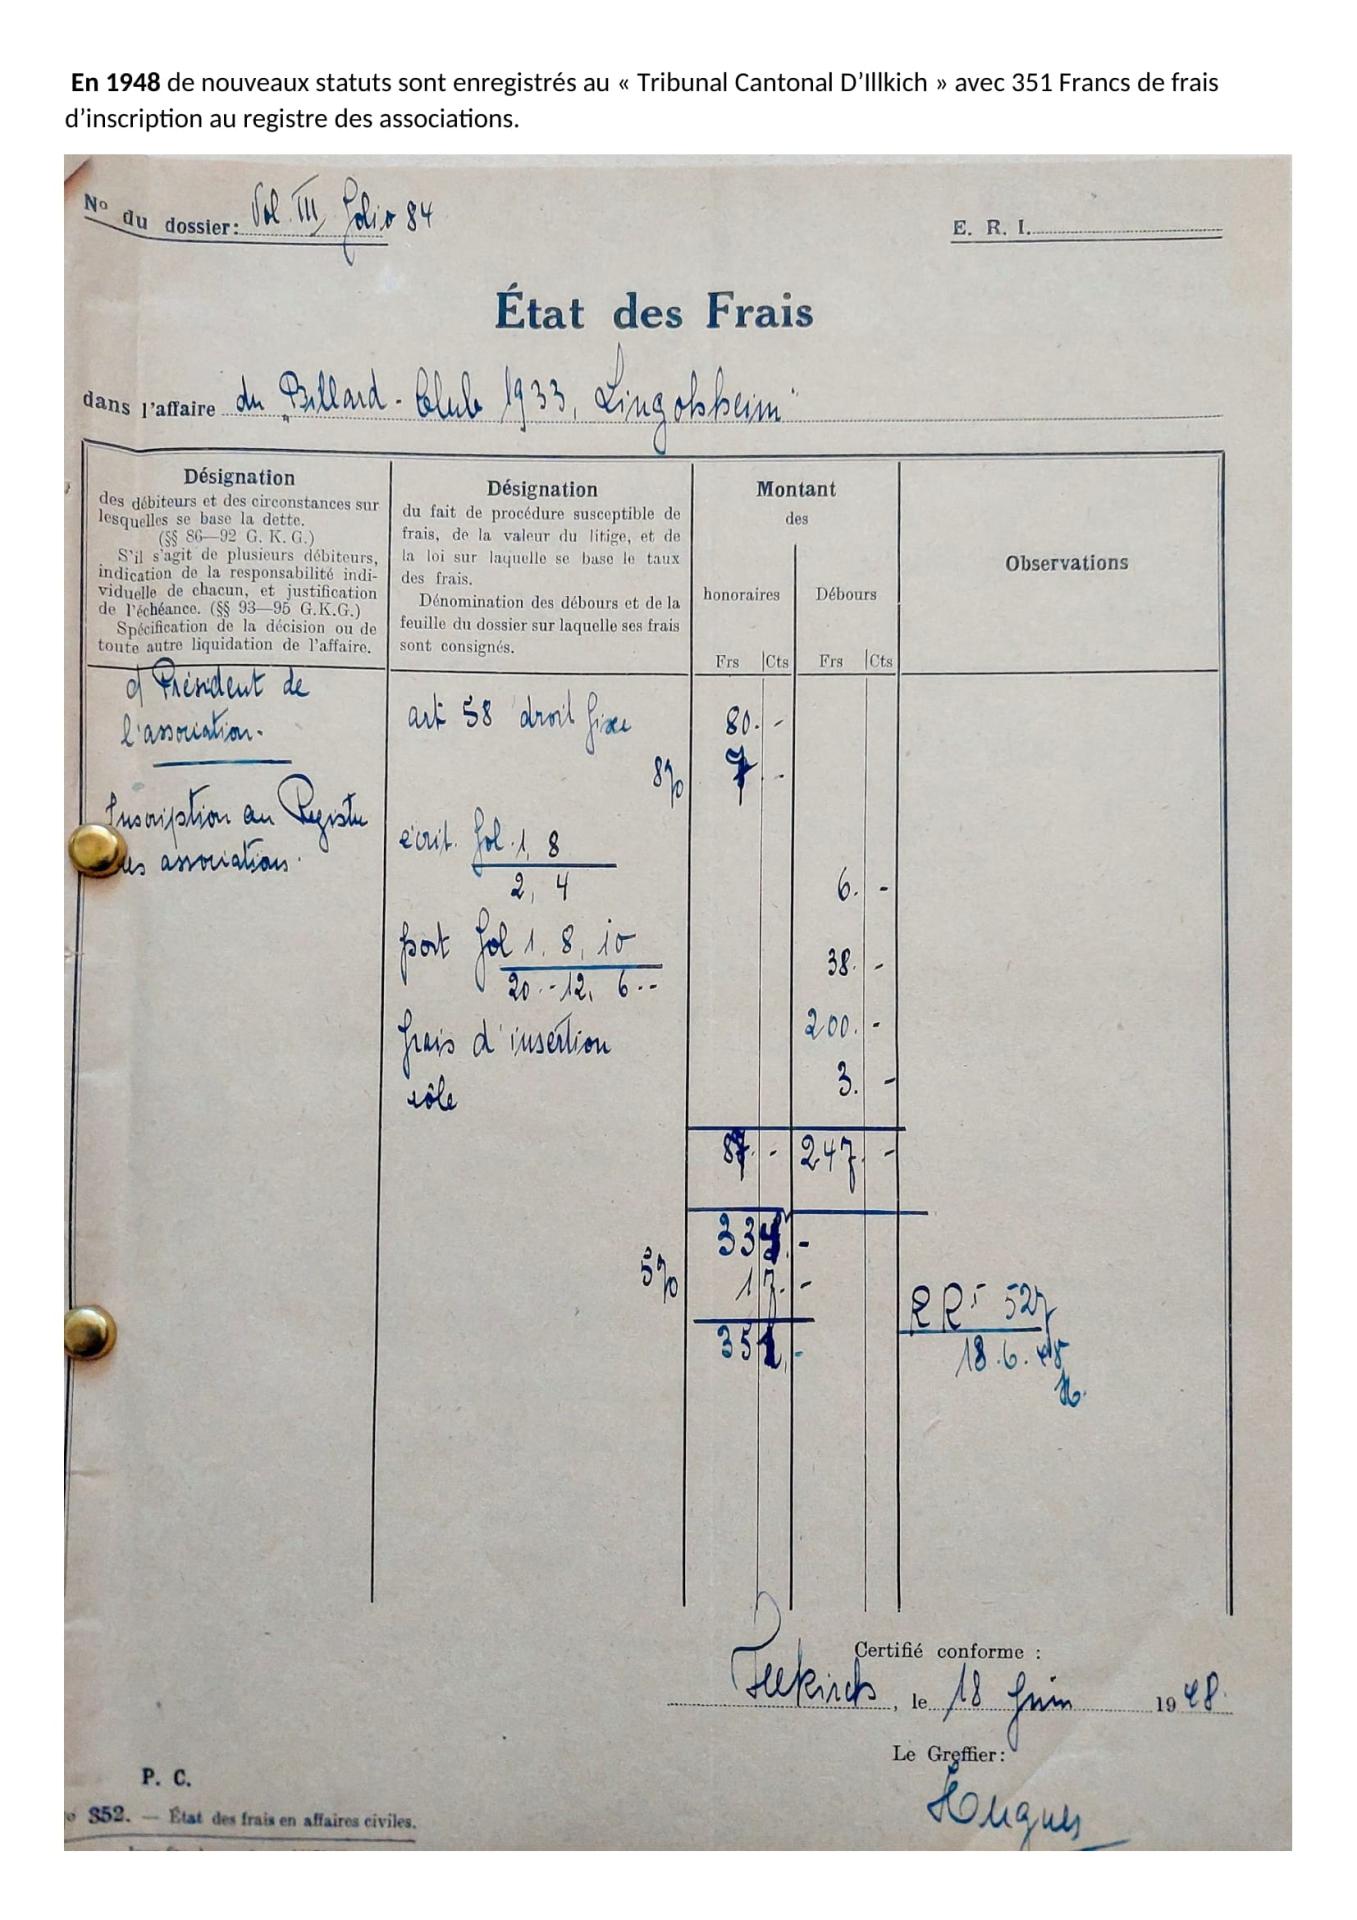 En 1948 de nouveaux statuts sont enregistrés au « Tribunal Cantonal D’Illkich » avec 351 Francs de frais
d’inscription au registre des associations.
No du dossier: Vol. III, folio 84
E. R. I.
État des Frais
dans l'affaire du "Billard-Club 1933, Lingolsheim"
Désignation
des débiteurs et des circonstances sur
lesquelles se base la dette.
(§§ 86—92 G. K. G.)
S'il s'agit de plusieurs débiteurs,
indication de la responsabilité indi-
viduelle de chacun, et justification
de l'échéance. (§§ 93—95 G.K.G.)
Spécification de la décision ou de
toute autre liquidation de l'affaire.
Désignation
du fait de procédure susceptible de
frais, de la valeur du litige, et de
la loi sur laquelle se base le taux
des frais.
Dénomination des débours et de la
feuille du dossier sur laquelle ses frais
sont consignés.
Montant
des
honoraires Débours
Frs Cts Frs Cts
Observations
Président de
l'association.
art 58 droit fixe 80. -
8% 7 -
Inscription au Registre
des associations.
écrit. fol. 1, 8
2, 4 6. -
port fol 1. 8, 10 38. -
20.- 12, 6.-
frais d'insertion 200. -
rôle 3. -
87. - 247. -
334. -
5% 17. -
351, -
RR 527
18.6.48
Certifié conforme :
Illkirch, le 18 Juin 1948.
Le Greffier:
Hugues
P. C.
352. — État des frais en affaires civiles.